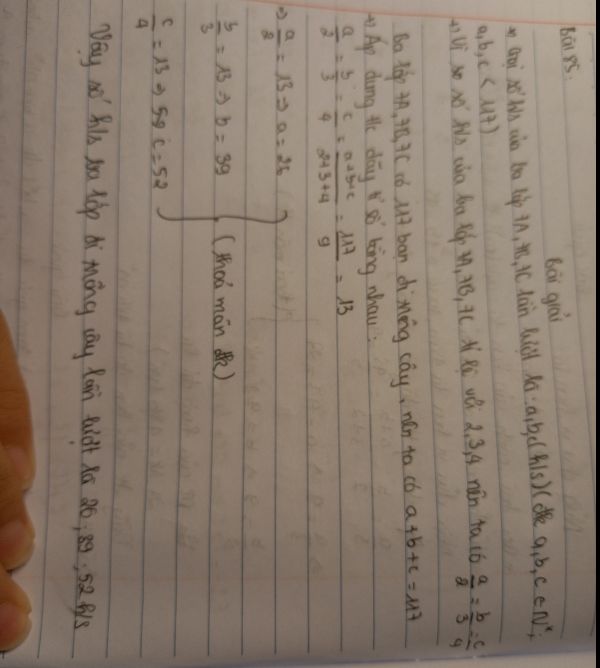 Bài 85:
Bài giải
+) Gọi số h/s của ba lớp 7A, 7B, 7C lần lượt là: a, b, c (h/s) (đk a, b, c ∈ N*;
a, b, c < 117)
+) Vì số h/s của ba lớp 7A, 7B, 7C tỉ lệ với 2, 3, 4 nên ta có a/2 = b/3 = c/4
Ba lớp 7A, 7B, 7C có 117 bạn đi trồng cây, nên ta có a+b+c = 117
+) Áp dụng t/c dãy tỉ số bằng nhau:
a/2 = b/3 = c/4 = a+b+c/2+3+4 = 117/9 = 13
=> a/2 = 13 => a = 26
b/3 = 13 => b = 39 (thoả mãn đk)
c/4 = 13 => c = 52
Vậy số h/s ba lớp đi trồng cây lần lượt là 26; 39; 52 h/s